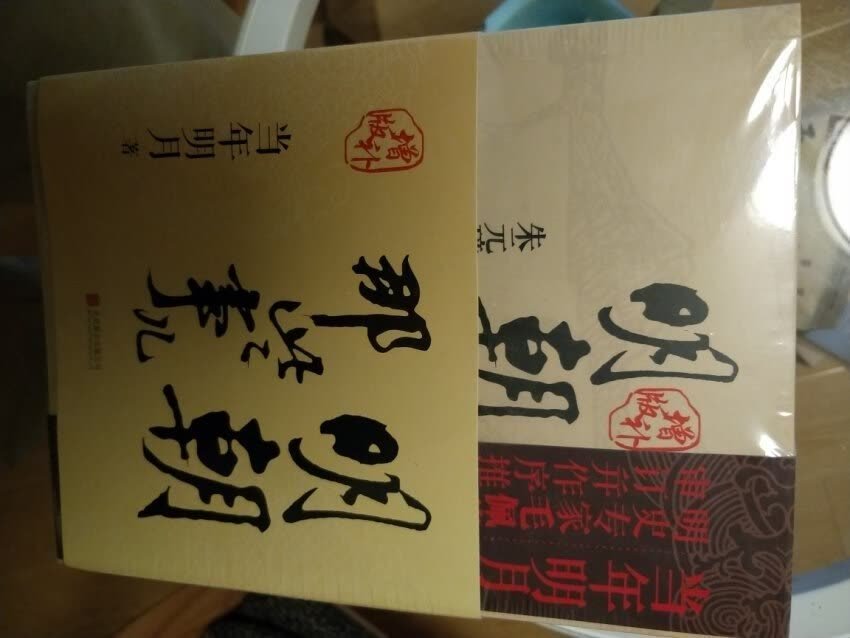 增补版
当年明月 著
明朝
那些
事儿
朱元
明朝
增补版
明史专家毛佩
审订并作序推
当年明月